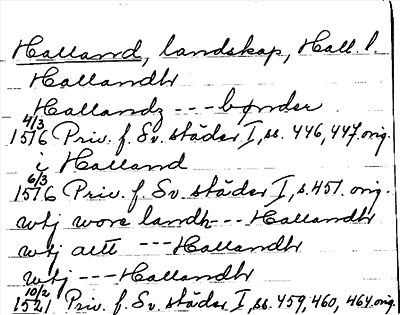 Halland, landskap, Hall. l.
Hallandh
Hallandz --- bønder
4/3 1516 Priv. f. Sv. städer I, ss. 446, 447. orig.
i Halland
6/3 1516 Priv. f. Sv. städer I, s. 451. orig.
wtj wore landh --- Hallandh
wtj altt --- Hallandh
wtj --- Hallandh
10/2 1521 Priv. f. Sv. städer I, ss. 459, 460, 464. orig.